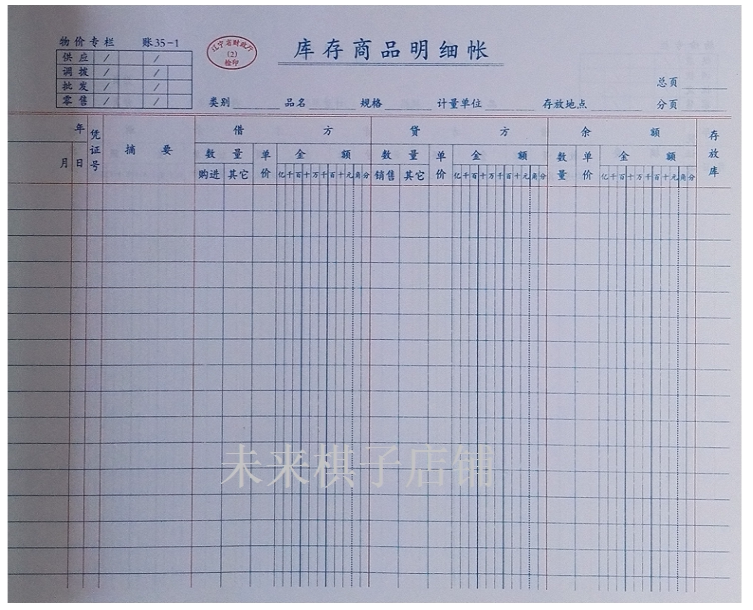 物价专栏 账35-1
供应 / /
调拨 / /
批发 / /
零售 / /
辽宁省财政厅
(2)
检印
库存商品明细帐
总页
类别 品名 规格 计量单位 存放地点 分页
年 凭证号 摘要 借方 贷方 余额 存放库
月 日 数量 单价 金额 数量 单价 金额 数量 单价 金额
购进 其它 亿千百十万千百十元角分 销售 其它 亿千百十万千百十元角分 亿千百十万千百十元角分
未来棋子店铺